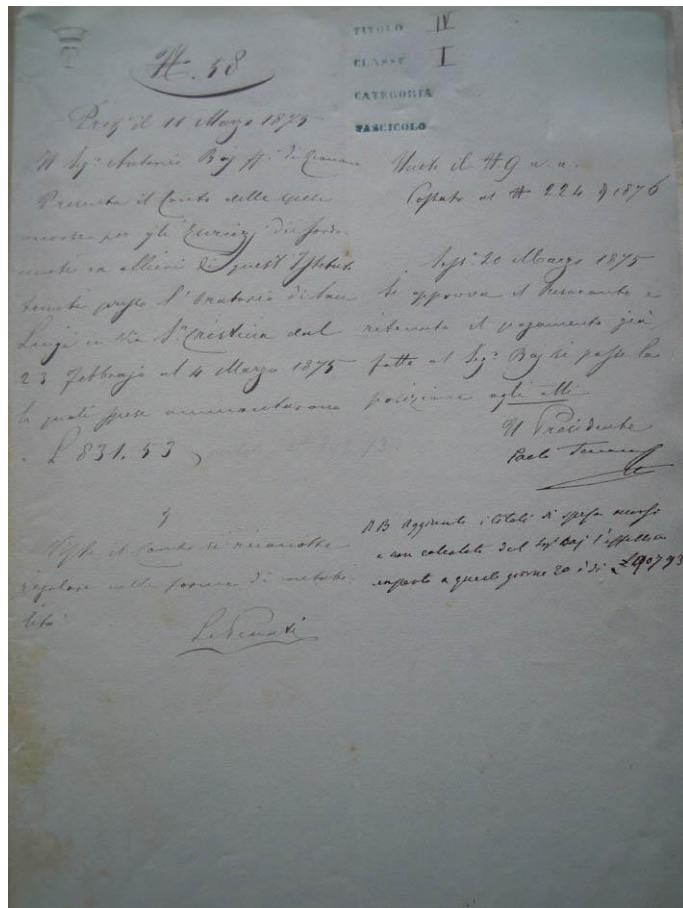 TITOLO IV
CLASSE I
CATEGORIA
FASCICOLO
N. 58
il 11 Marzo 1875
Il Sigr. Antonio Baj
Presenta il Conto delle spese
per gli Esercizj dei sordo
muti ex allievi di quest'Istituto
tenuti presso l'Oratorio di San
Luigi in Via Sta. Cristina dal
23 Febbrajo al 4 Marzo 1875
le quali spese ammontarono
L 831.53
Visto il Conto si riconosce
regolare nella forma di contabi
lità
Unito il N. 9 a. a.
al N 224 1876
20 Marzo 1875
Si approva il Resoconto e
ritenuto il pagamento già
fatto al Sigr. Baj si passi la
posizione agli atti
Il Presidente
Paolo
NB Aggiunti i totali di spesa
e non calcolati dal Sigr Baj
a questo giorno 20